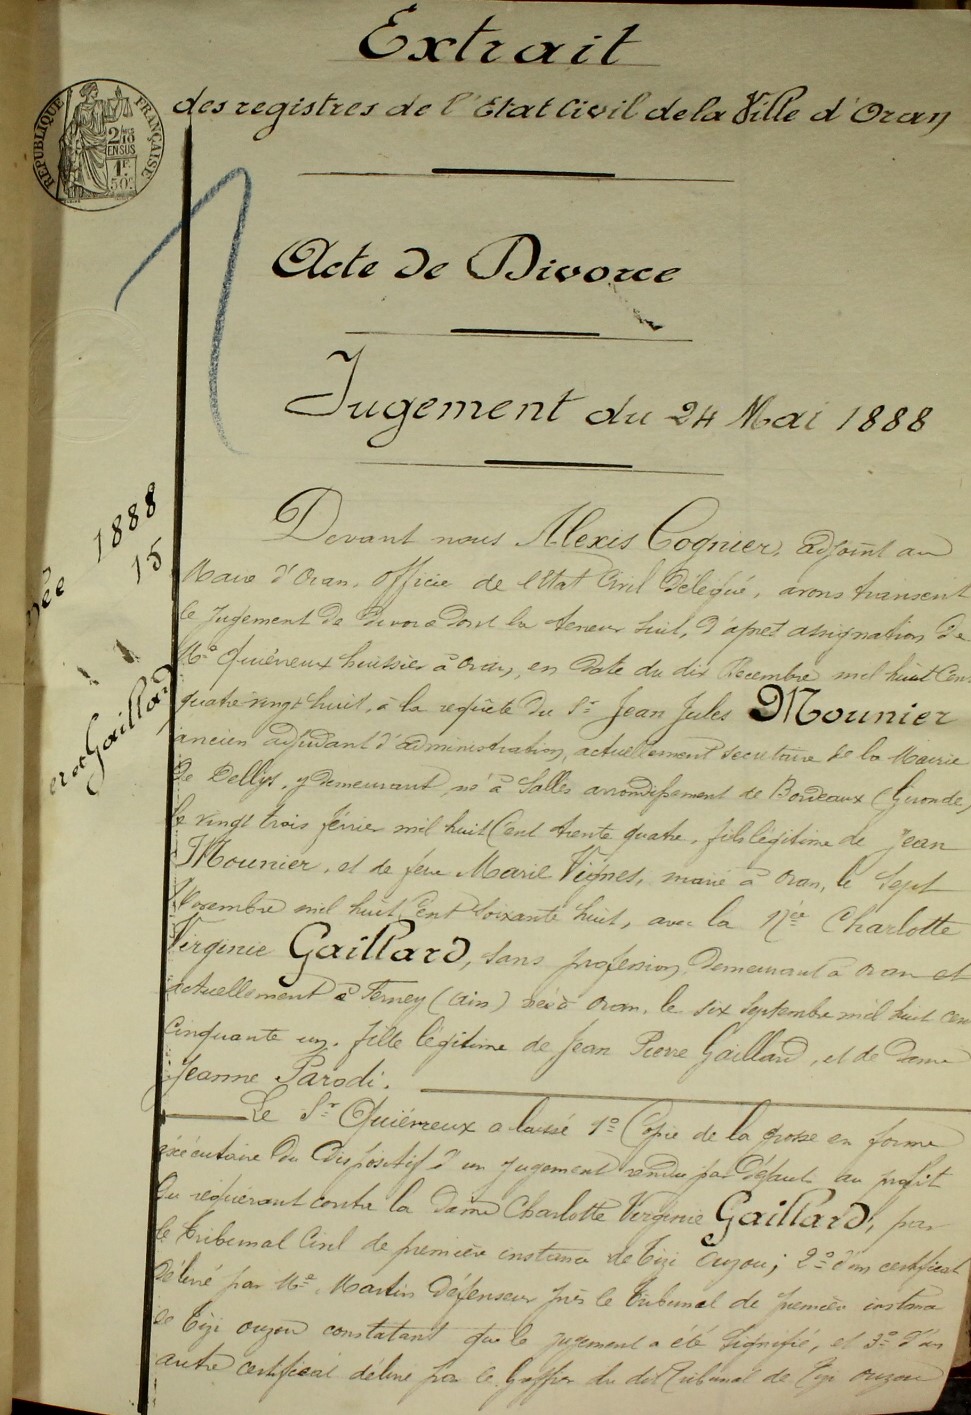 Extrait
des registres de l'Etat Civil de la Ville d'Oran
RÉPUBLIQUE FRANÇAISE
2/10
EN SUS
1F.
50c
Acte de Divorce
Jugement du 24 Mai 1888
1888
15
née
er et Gaillard
Devant nous Alexis Cognier, adjoint au
Maire d'Oran, officier de l'Etat Civil Délégué, avons transcrit
le Jugement de divorce dont la teneur suit, d'après assignation de
Me Quiévreux huissier à Oran, en date du dix Décembre mil huit Cent
quatre vingt huit, à la requête du Sr Jean Jules Mounier
ancien adjudant d'administration, actuellement secrétaire de la Mairie
de Dellys, y demeurant, né à Salles arrondissement de Bordeaux (Gironde)
le vingt trois février mil huit Cent trente quatre, fils légitime de Jean
Mounier, et de feue Marie Vignes, marié à Oran, le Sept
Novembre mil huit Cent soixante huit, avec la Charlotte
Virginie Gaillard, sans profession, demeurant à Oran et
actuellement à Ferney (Ain) née à Oran, le six Septembre mil huit cent
cinquante un, fille légitime de Jean Pierre Gaillard, et de Dame
Jeanne Parodi.
Le Sr Quiévreux a laissé 1o Copie de la grosse en forme
exécutoire du Dispositif d'un jugement rendu par Défaut au profit
du requérant contre la Dame Charlotte Virginie Gaillard, par
le Tribunal Civil de première instance de Tizi Ouzou; 2o d'un certificat
délivré par Me Martin Défenseur près le Tribunal de première instance
de Tizi Ouzou constatant que le jugement a été signifié, et 3o d'un
autre certificat délivré par le Greffier du dit Tribunal de Tizi Ouzou